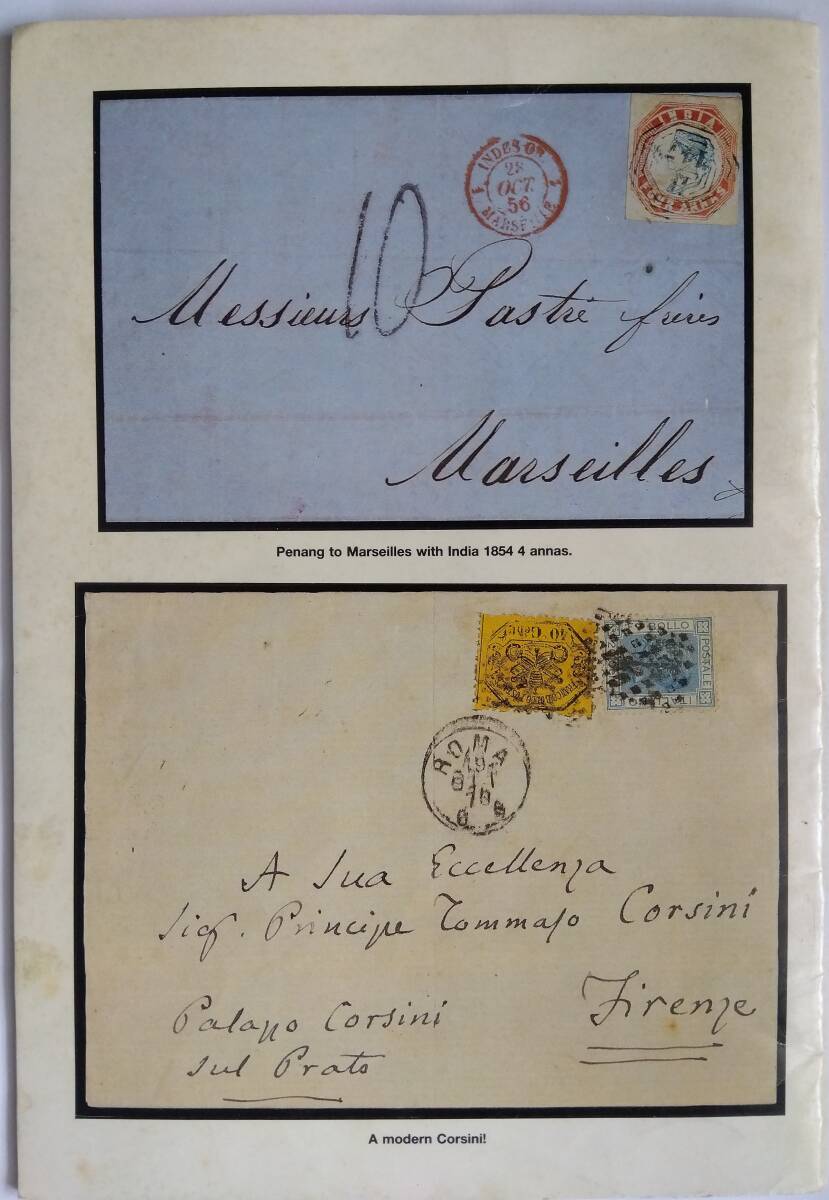 INDES OR.
28
OCT.
56
MARSEILLE
INDIA
FOUR ANNAS
10
Messieurs Pastré frères
Marseilles
Penang to Marseilles with India 1854 4 annas.
40 Cent
FRANCO BOLLO POSTALE
BOLLO
POSTALE
ROMA
19
OTT
70
A Sua Eccellenza
Sigr. Principe Tommaso Corsini
Firenze
Palazzo Corsini
sul Prato
A modern Corsini!